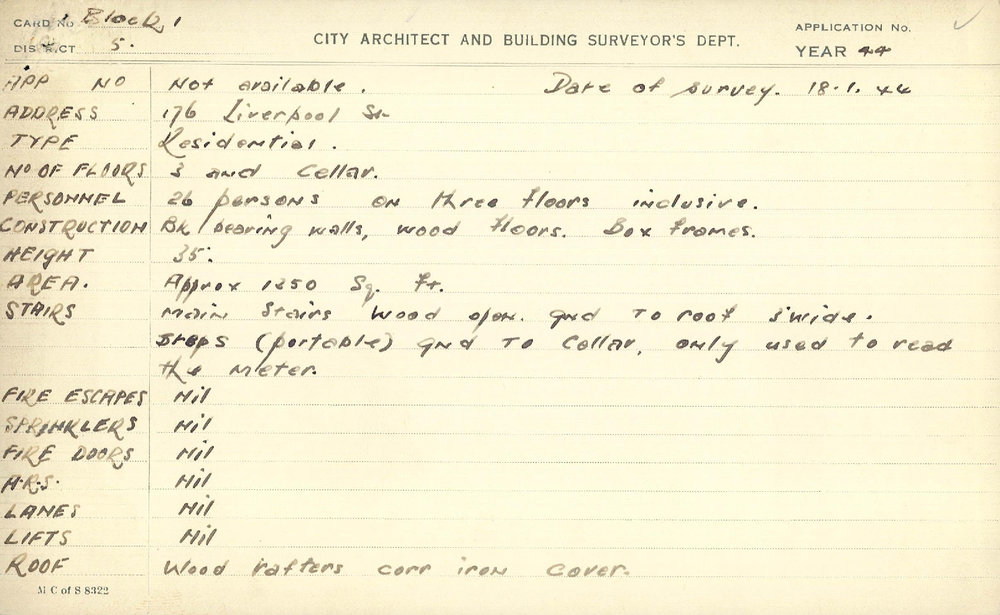 CARD No Block 1
DISTRICT 5.
CITY ARCHITECT AND BUILDING SURVEYOR'S DEPT.
APPLICATION No.
YEAR 44
APP No Not available. Date of survey. 18.1.44
ADDRESS 176 Liverpool St
TYPE Residential.
No OF FLOORS 3 and Cellar.
PERSONNEL 26 persons on three floors inclusive.
CONSTRUCTION Bk bearing walls, wood floors. Box frames.
HEIGHT 35'.
AREA. Approx 1250 Sq. Ft.
STAIRS Main Stairs wood open. gnd to roof 3' wide.
Steps (portable) gnd to Cellar, only used to read
the meter.
FIRE ESCAPES Nil
SPRINKLERS Nil
FIRE DOORS Nil
H.R.S. Nil
LANES Nil
LIFTS Nil
ROOF Wood rafters corr iron cover.
M C of S 8322